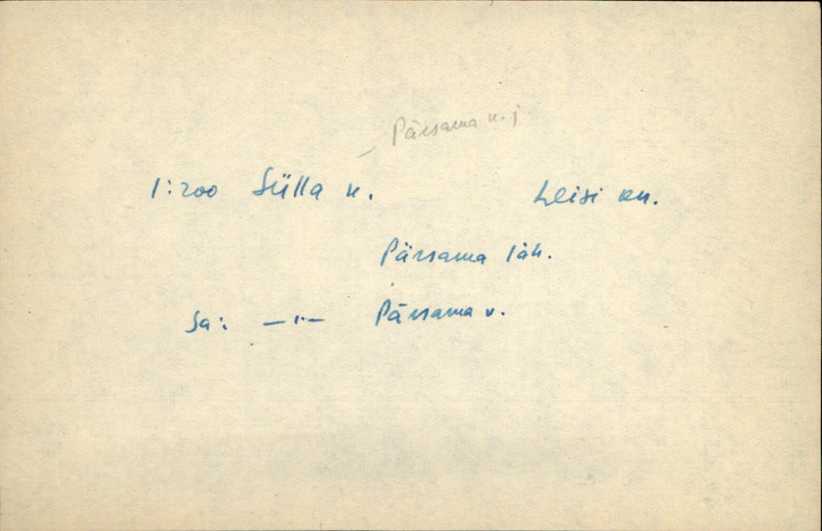 Pärsama k. j
1:200 Sülla k. Leisi kn.
Pärsama läh.
Sa: —"— Pärsama v.